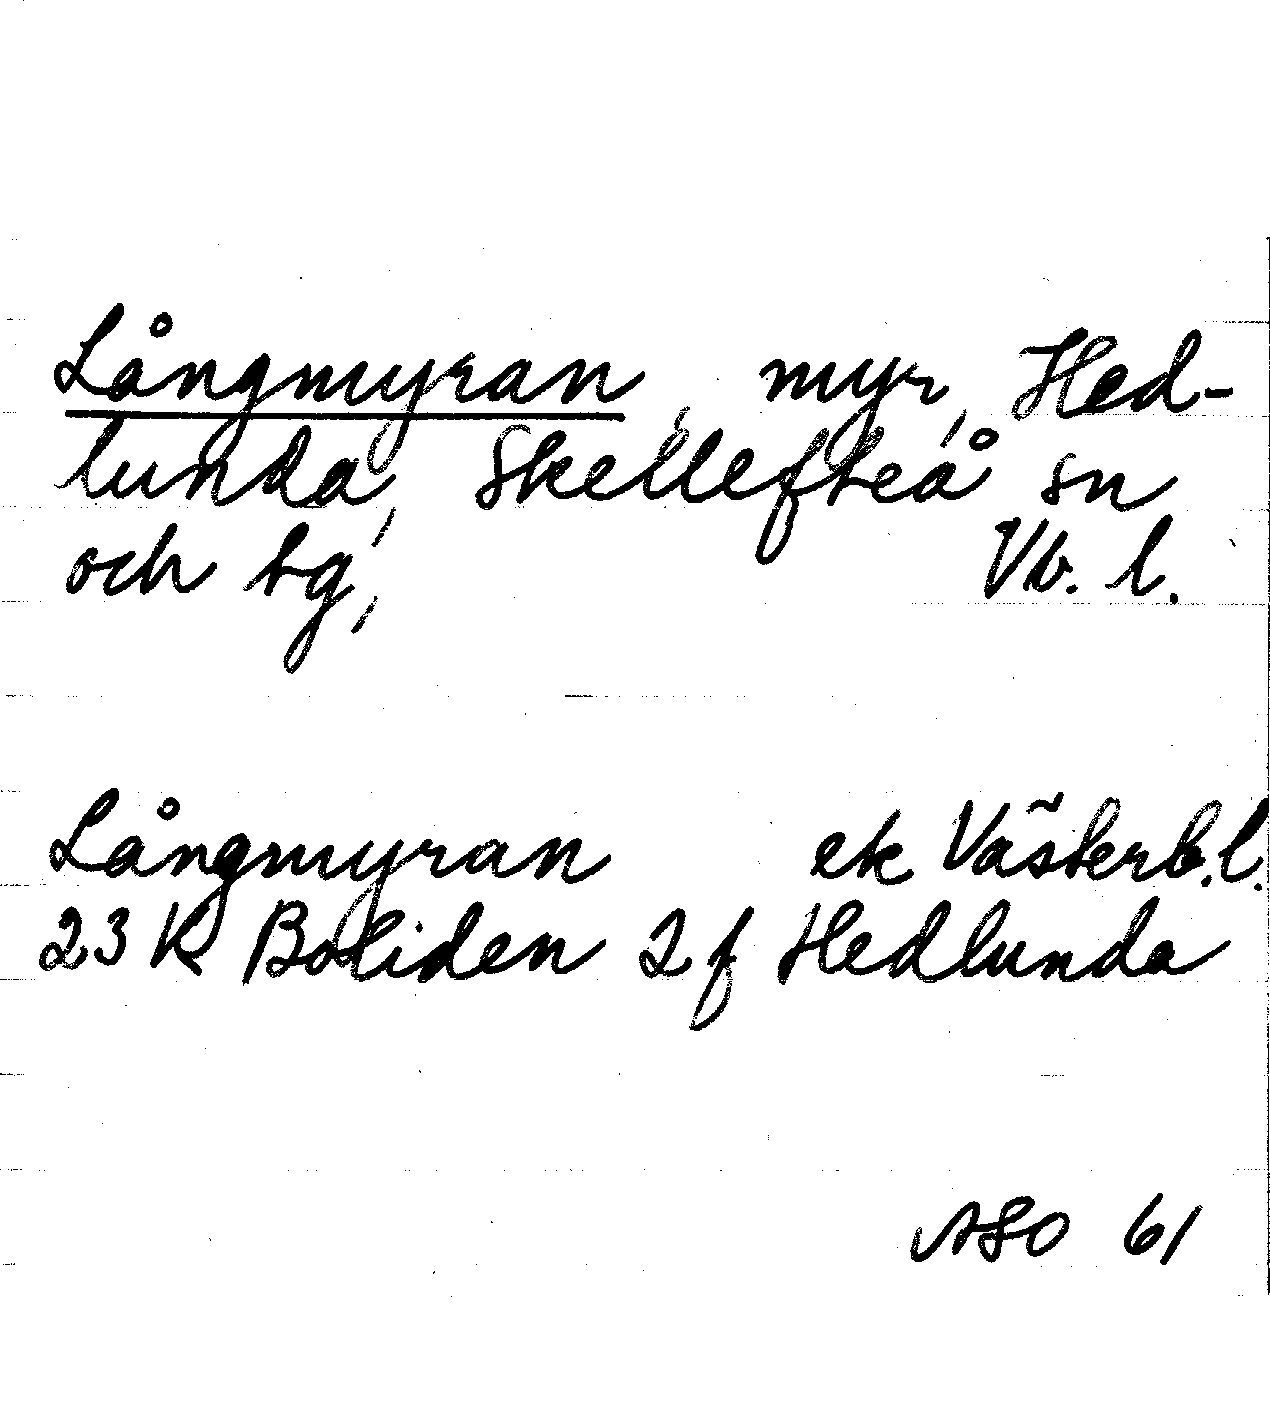 Långmyran, myr, Hed-
lunda, Skellefteå sn
och tg, Vb. l.
Långmyran ek Västerb.l.
23 K Boliden 2 f Hedlunda
ASO 61